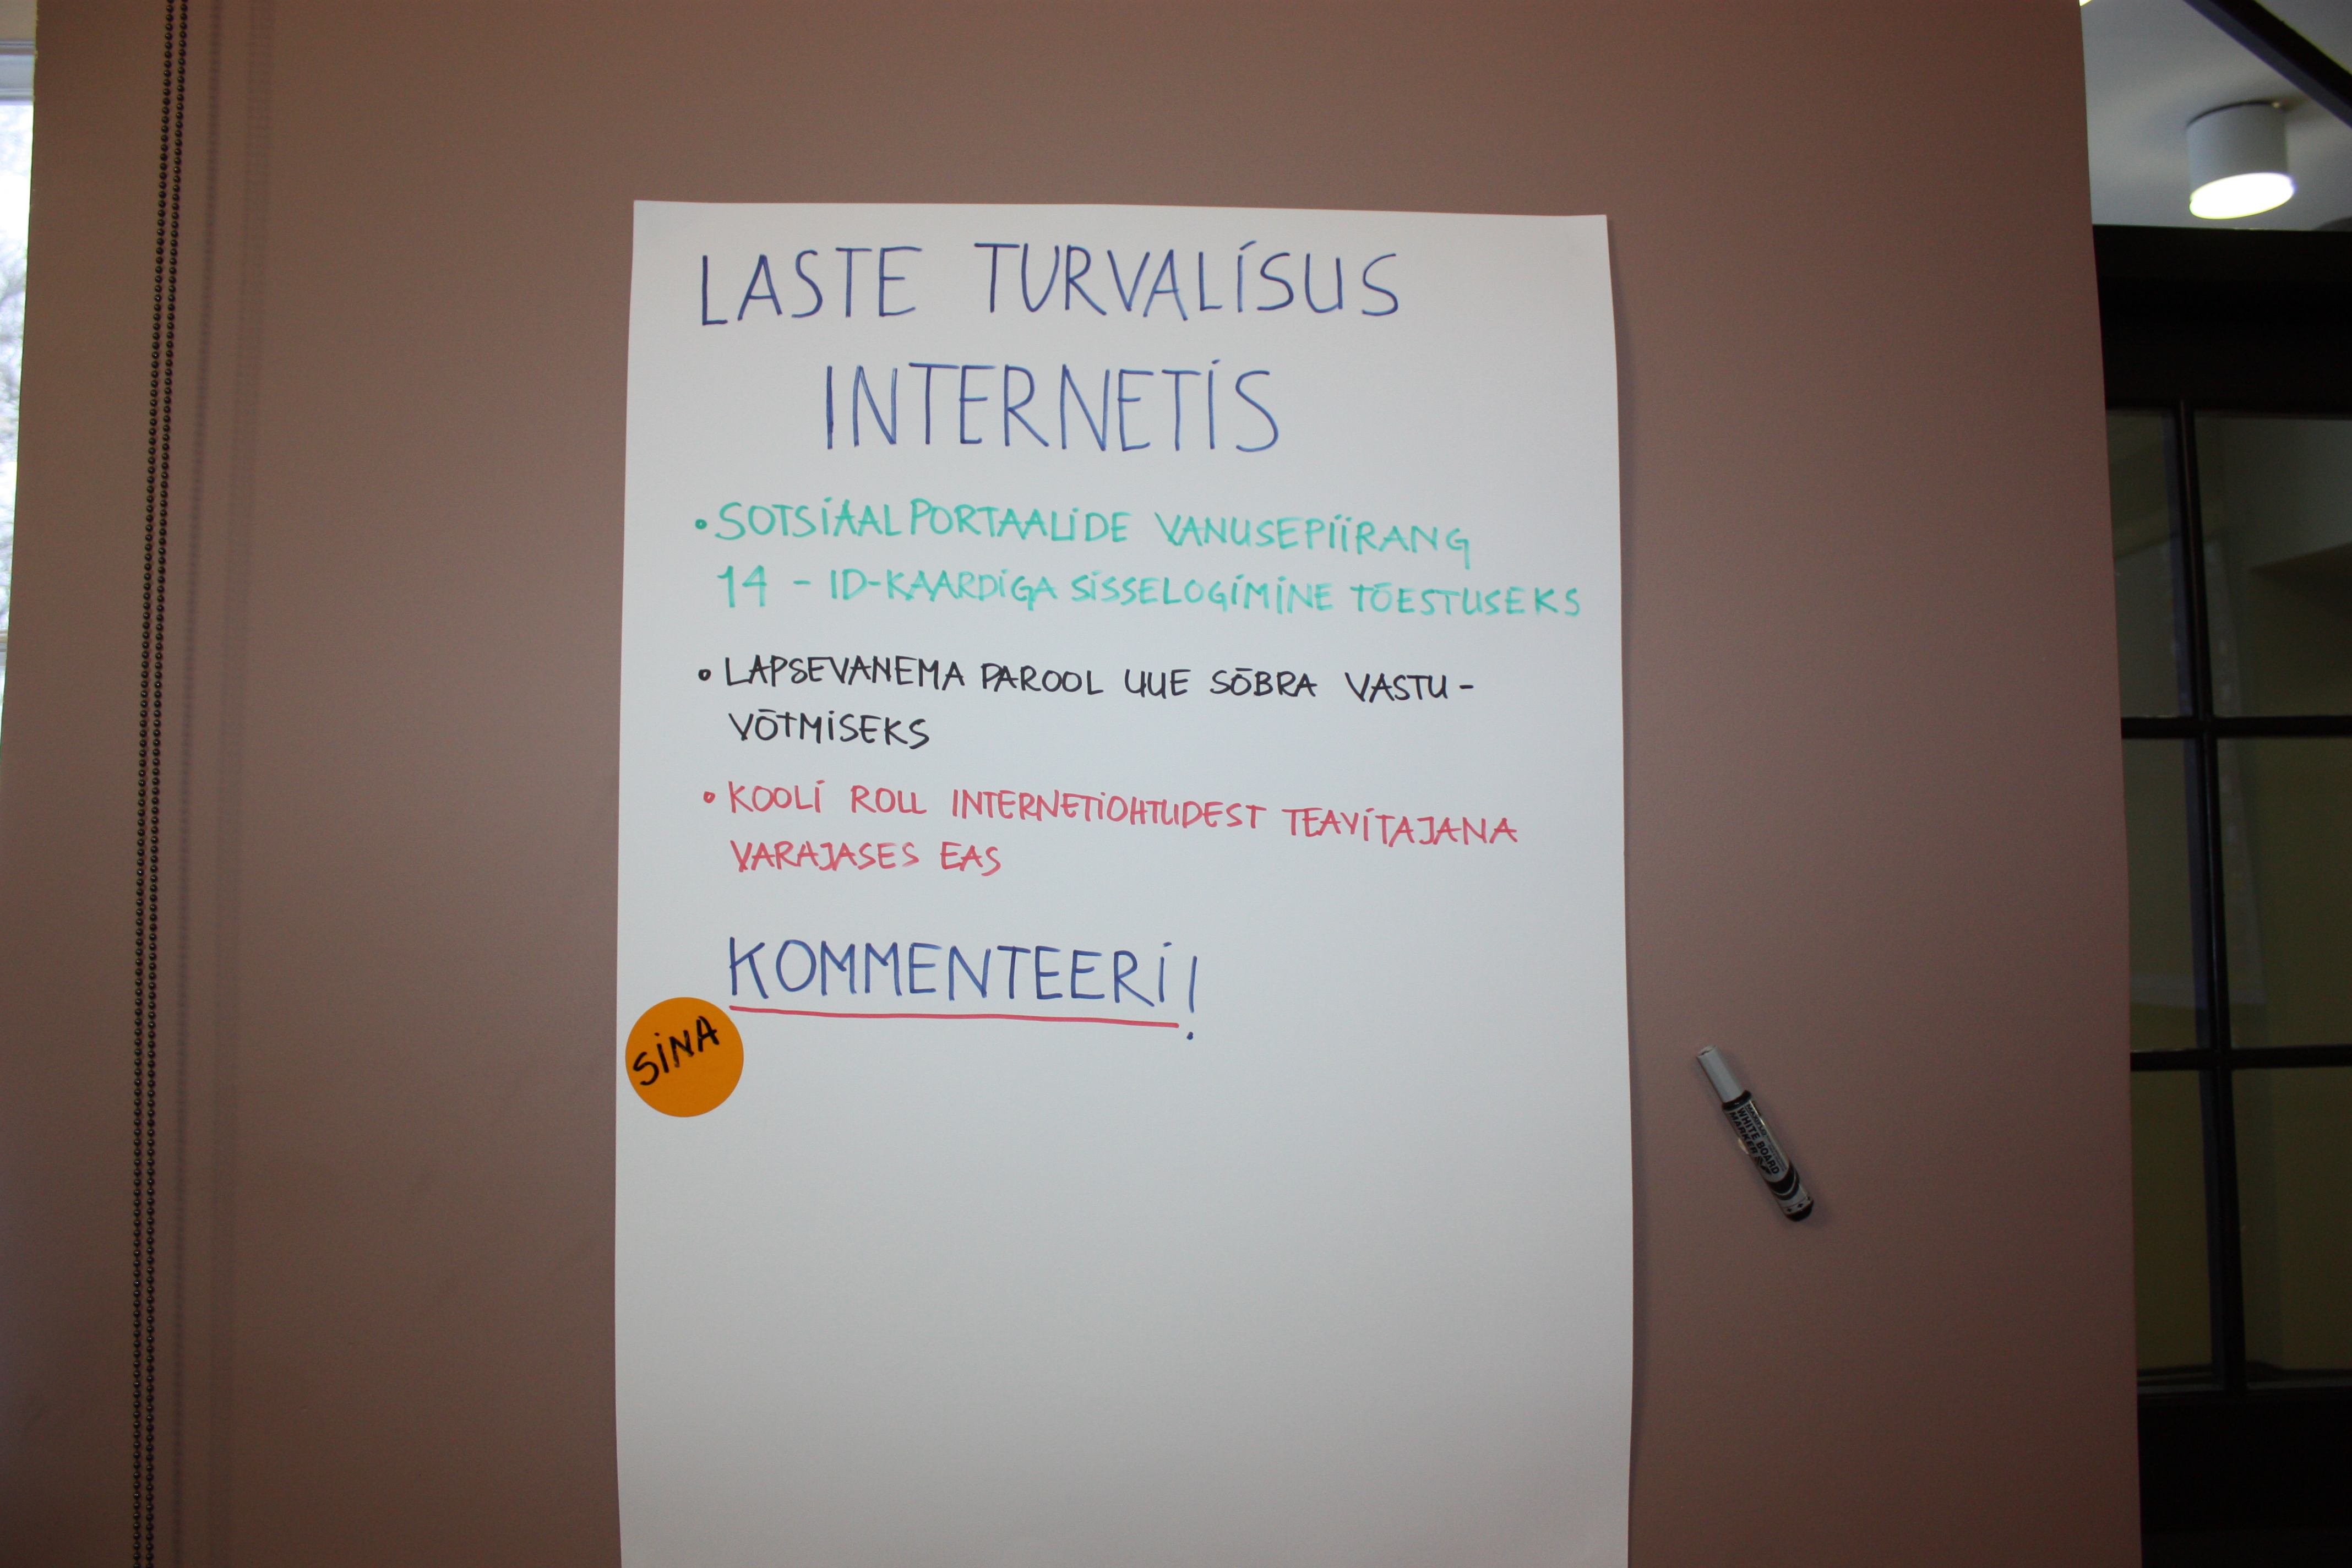 LASTE TURVALISUS
INTERNETIS
• SOTSIAALPORTAALIDE VANUSEPIIRANG
14 - ID-KAARDIGA SISSELOGIMINE TÕESTUSEKS
• LAPSEVANEMA PAROOL UUE SÕBRA VASTU-
VÕTMISEKS
• KOOLI ROLL INTERNETIOHTUDEST TEAVITAJANA
VARAJASES EAS
KOMMENTEERI!
SINA
WHITE BOARD
MARKER